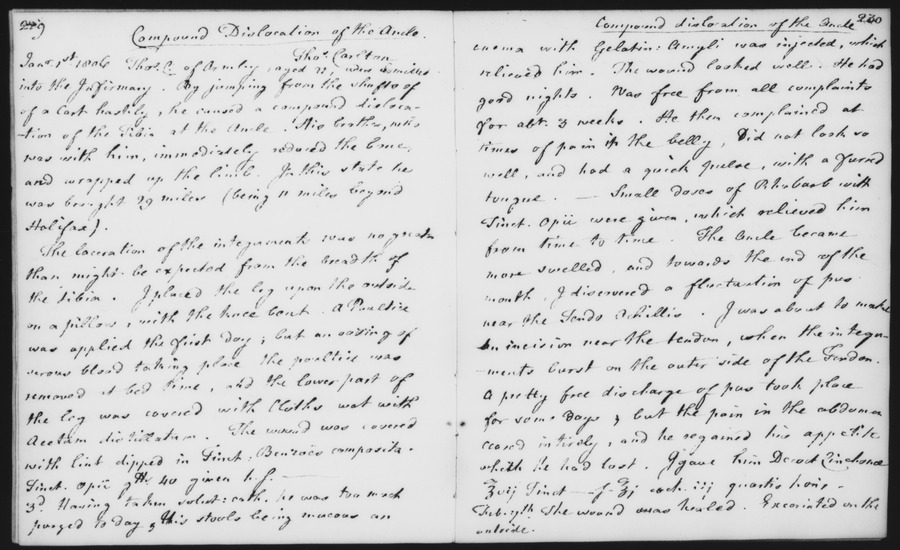 229
Compound Dislocation of the Ancle.
Thos. Carlton
Jany. 1st 1806 Thos. C. of Armley, aged 21, was admitted
into the Infirmary. By jumping from the shafts of
of a Cart hastily, he caused a compound disloca-
-tion of the Tibia at the Ancle. His brother, who
was with him, immediately reduced the bone,
and wrapped up the limb. In this state he
was brought 29 miles (being 11 miles beyond
Halifax).
The laceration of the integuments was no greater
than might be expected from the breadth of
the tibia. I placed the leg upon the outside
on a pillow, with the knee bent. A Poultice
was applied the first Day; but an oozing of
serous blood taking place the poultice was
removed at bed time, and the lower part of
the leg was covered with Cloths wet with
Acetum distillatum. The wound was covered
with lint dipped in Tinct: Benzoës composita.
Tinct. Opii gtts 40 given h.s.
3d. Having taken solut: cath. he was too much
purged to day & his stools being mucous an
230
Compound dislocation of the Ancle
enema with Gelatin: Amyli was injected, which
relieved him. The wound looked well. He had
good nights. Was free from all complaints
for abt. 3 weeks. He then complained at
times of pain in the belly, Did not look so
well, and had a quick pulse, with a furred
tongue. — Small doses of Rhubarb with
Tinct. Opii were given, which relieved him
from time to time. The Ancle became
more swelled, and towards the end of the
month, I discovered a fluctuation of pus
near the Tendo Achillis. I was about to make
an incision near the tendon, when the integu-
-ments burst on the outer side of the Tendon.
A pretty free discharge of pus took place
for some days; but the pain in the abdomen
ceased intirely, and he regained his appetite
which he had lost. I gave him Decoct Cinchonae
℥vij Tinct — f ℥j coch. iij quartis horis —
Feb. 17th. The wound was healed. Excoriated on the
outside.